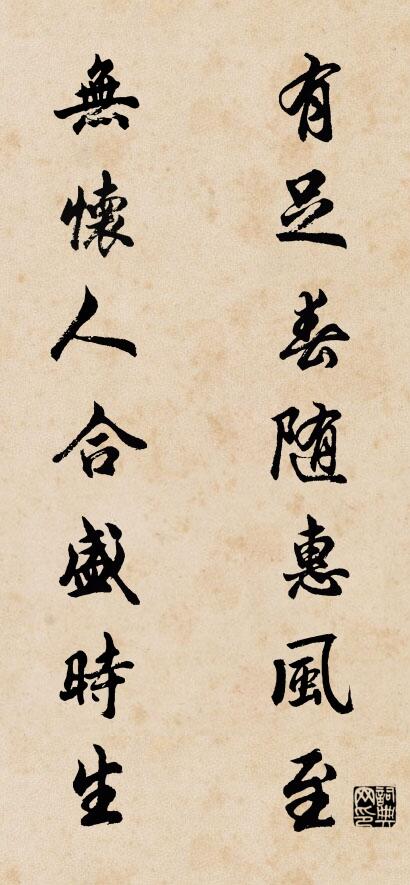 有足春随惠風至
無懷人合盛時生
詞典网印